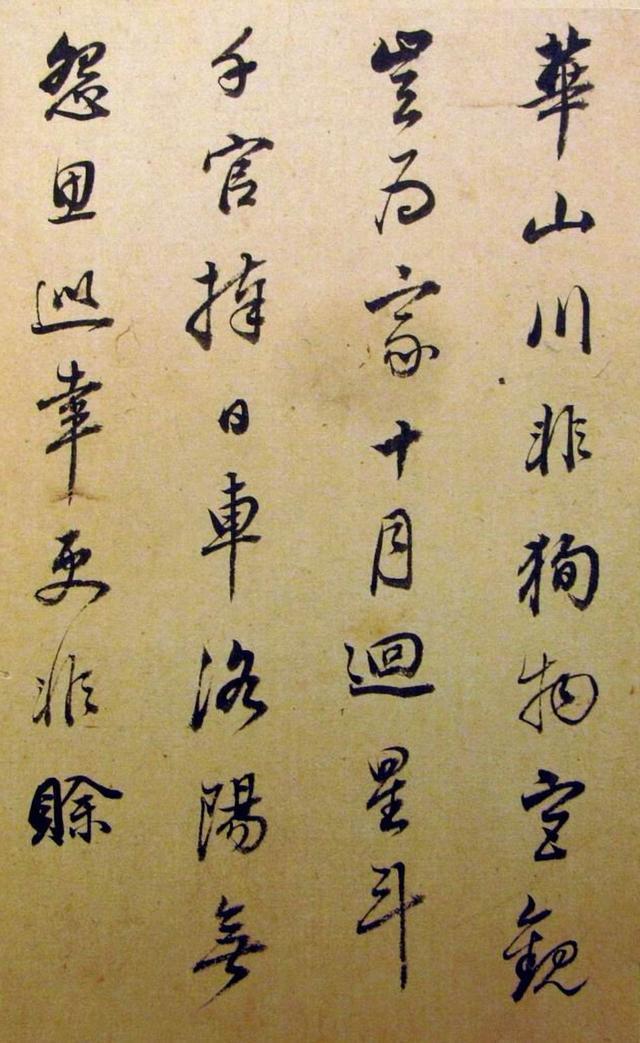 華山川非狥物宮觀
豈為家十月迴星斗
千官捧日車洛陽無
怨思巡幸更非賒